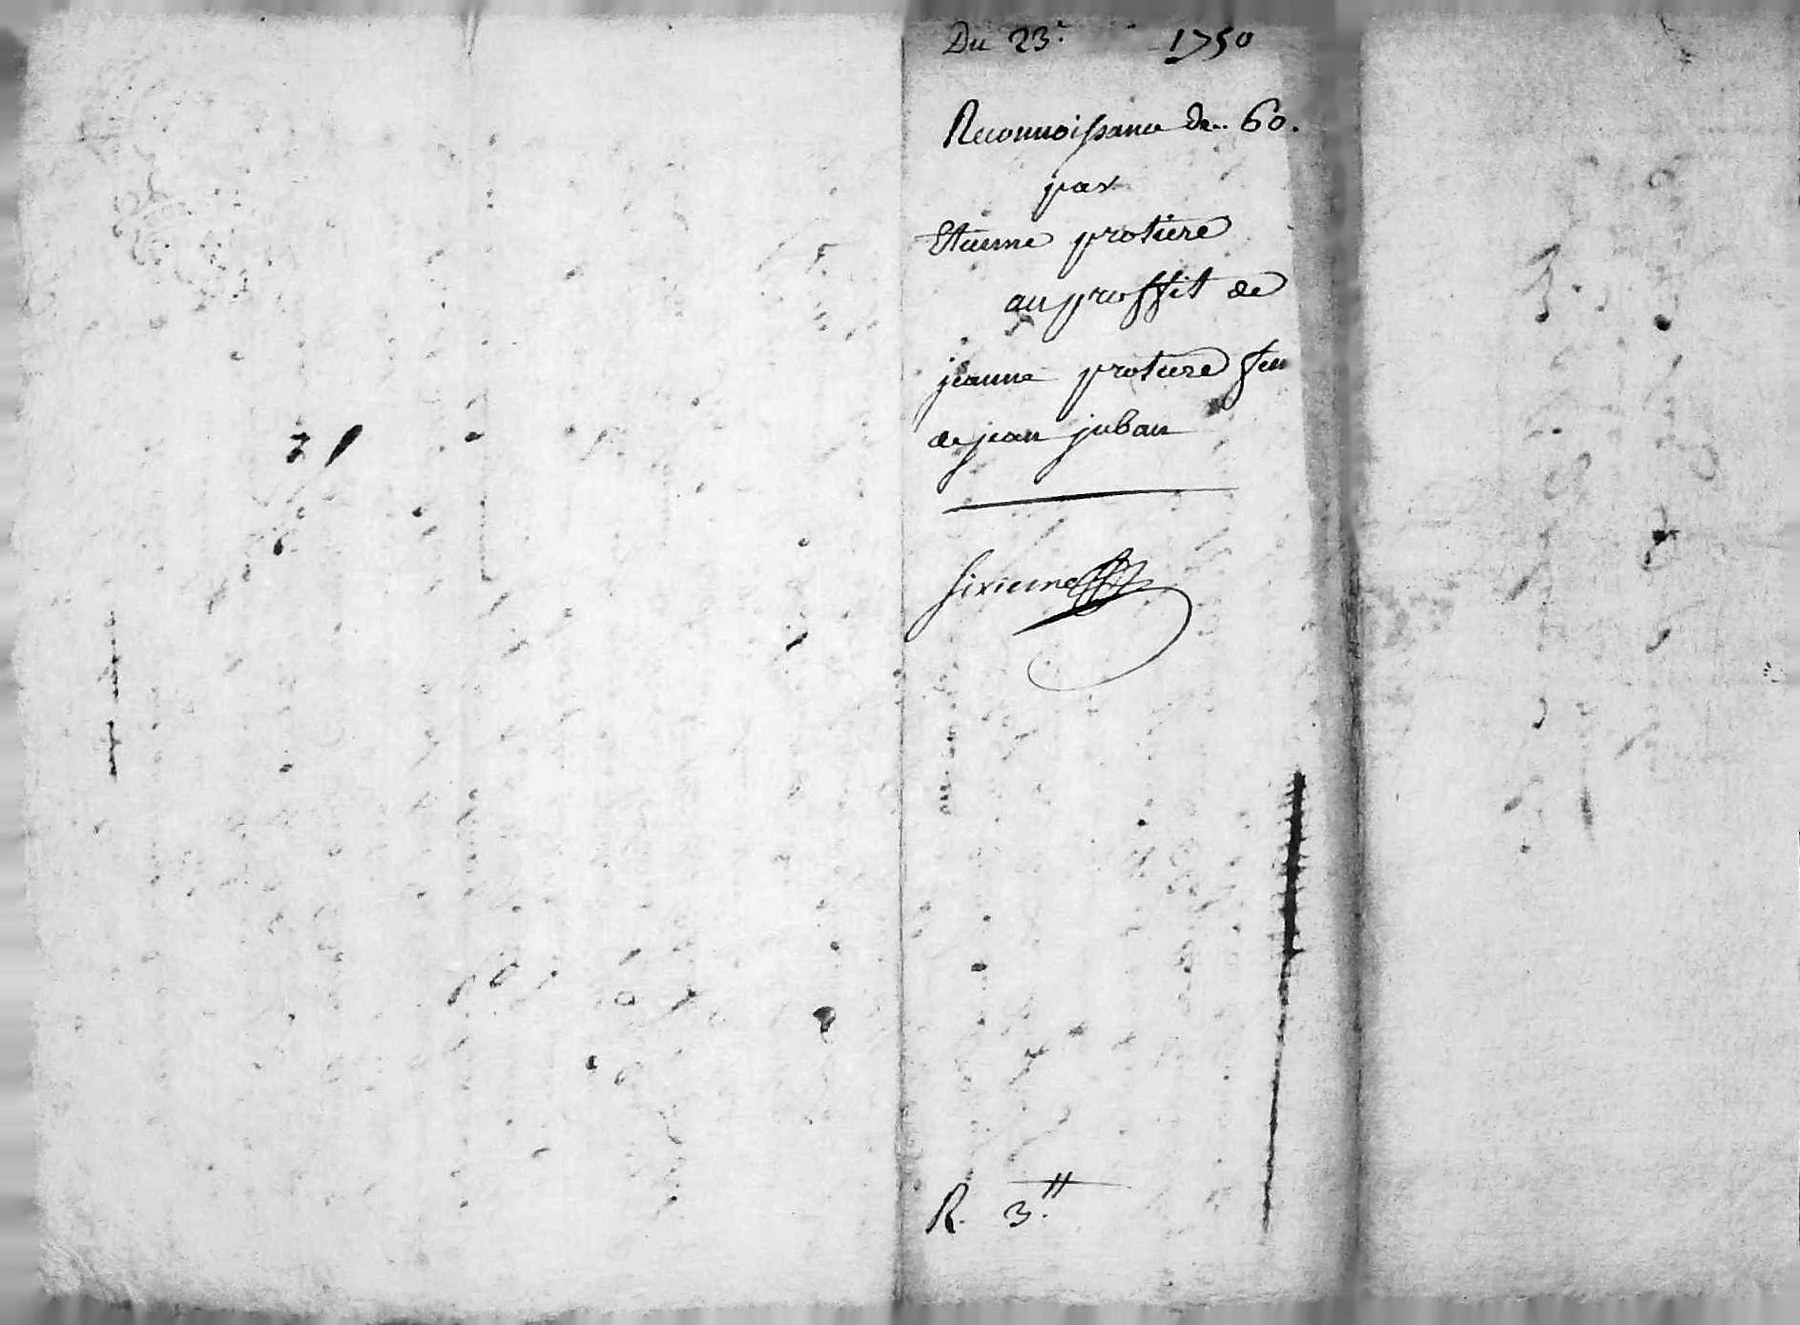 Du 23.e 1750
Reconnoissance de 60.
par
Etienne protiere
au proffit de
jeanne protiere fem
de jean juban
R. 3.tt